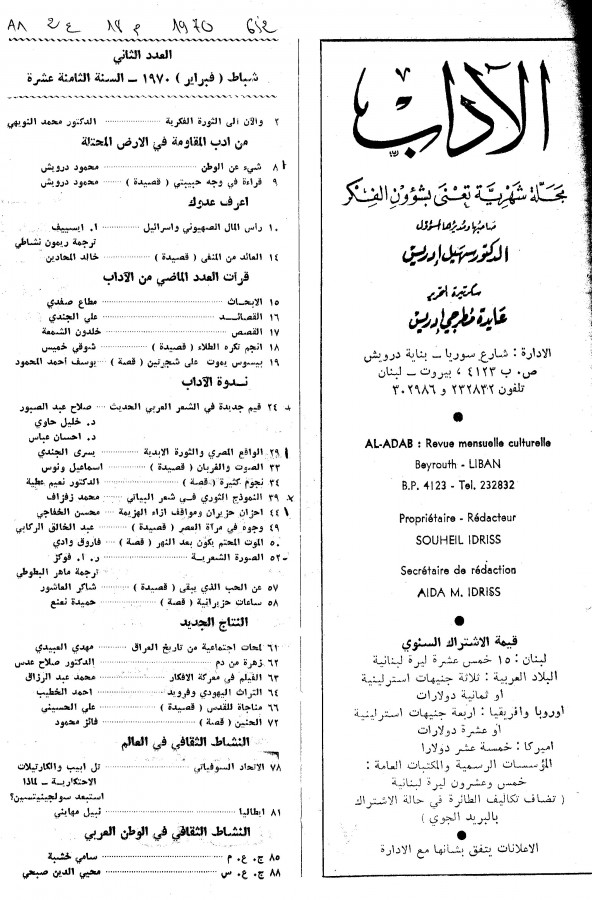 A8 ع 2 م 18 1970 6/2
الآداب
مجلة شهرية تعنى بشؤون الفكر
صاحبها ومديرها المسؤول
الدكتور سهيل إدريس
سكرتيرة التحرير
عايدة مطرجي إدريس
الادارة : شارع سوريا – بناية درويش
ص.ب ٤١٢٣ ، بيروت – لبنان
تلفون ٢٣٢٨٣٢ و ٣٠٢٩٨٦
AL-ADAB : Revue mensuelle culturelle
Beyrouth - LIBAN
B.P. 4123 - Tel. 232832
Propriétaire - Rédacteur
SOUHEIL IDRISS
Secrétaire de rédaction
AIDA M. IDRISS
قيمة الاشتراك السنوي
لبنان : ١٥ خمس عشرة ليرة لبنانية
البلاد العربية : ثلاثة جنيهات استرلينية
او ثمانية دولارات
اوروبا وافريقيا : اربعة جنيهات استرلينية
او عشرة دولارات
اميركا : خمسة عشر دولارا
المؤسسات الرسمية والمكتبات العامة :
خمس وعشرون ليرة لبنانية
( تضاف تكاليف الطائرة في حالة الاشتراك
بالبريد الجوي )
الاعلانات يتفق بشانها مع الادارة
العدد الثاني
شباط ( فبراير ) ١٩٧٠ – السنة الثامنة عشرة
٢ والآن الى الثورة الفكرية الدكتور محمد النويهي
من ادب المقاومة في الارض المحتلة
٨ شيء عن الوطن محمود درويش
٩ قراءة في وجه حبيبتي ( قصيدة ) محمود درويش
اعرف عدوك
١٠ رأس المال الصهيوني واسرائيل ا. ايسييف
ترجمة ريمون نشاطي
١٤ العائد من المنفى ( قصيدة ) خالد المحادين
قرأت العدد الماضي من الآداب
١٥ الابحاث مطاع صفدي
١٦ القصائد علي الجندي
١٧ القصص خلدون الشمعة
١٨ انجم تكره الطلاء ( قصيدة ) شوقي خميس
١٩ بيسوس يموت على شجرتين ( قصة ) يوسف أحمد المحمود
ندوة الآداب
٢٤ قيم جديدة في الشعر العربي الحديث صلاح عبد الصبور
د. خليل حاوي
د. احسان عباس
٢٩ الواقع المصري والثورة الابدية يسرى الجندي
٣٣ الصوت والقربان ( قصيدة ) اسماعيل ونوس
٣٤ نجوم كثيرة ( قصة ) الدكتور نعيم عطية
٣٩ النموذج الثوري في شعر البياتي محمد زفزاف
٤٤ احزان حزيران ومواقف ازاء الهزيمة محسن الخفاجي
٤٩ وجوه في مرآة العصر ( قصيدة ) عبد الخالق الركابي
٥٠ الموت المحتم يكون بعد النهر ( قصة ) فاروق وادي
٥٢ الصورة الشعرية ر. ا. فوكز
ترجمة ماهر البطوطي
٥٧ عن الحب الذي يبقى ( قصيدة ) شاكر العاشور
٥٨ ساعات حزيرانية ( قصة ) حميدة نعنع
النتاج الجديد
٦١ لمحات اجتماعية من تاريخ العراق مهدي العبيدي
٦٢ زهرة من دم الدكتور صلاح عدس
٦٣ الفيلم في معركة الافكار محمد عبد الرزاق
٦٤ التراث اليهودي وفرويد احمد الخطيب
٦٦ مناجاة للقدس ( قصيدة ) علي الحسيني
٧٢ الحنين ( قصة ) فائز محمود
النشاط الثقافي في العالم
٧٨ الاتحاد السوفياتي تل ابيب والكارتيلات
الاحتكارية – لماذا
استبعد سولجينيتسين؟
٨١ ايطاليا نبيل مهايني
النشاط الثقافي في الوطن العربي
٨٥ ج. ع. م سامي خشبة
٨٨ ج. ع. س محيي الدين صبحي